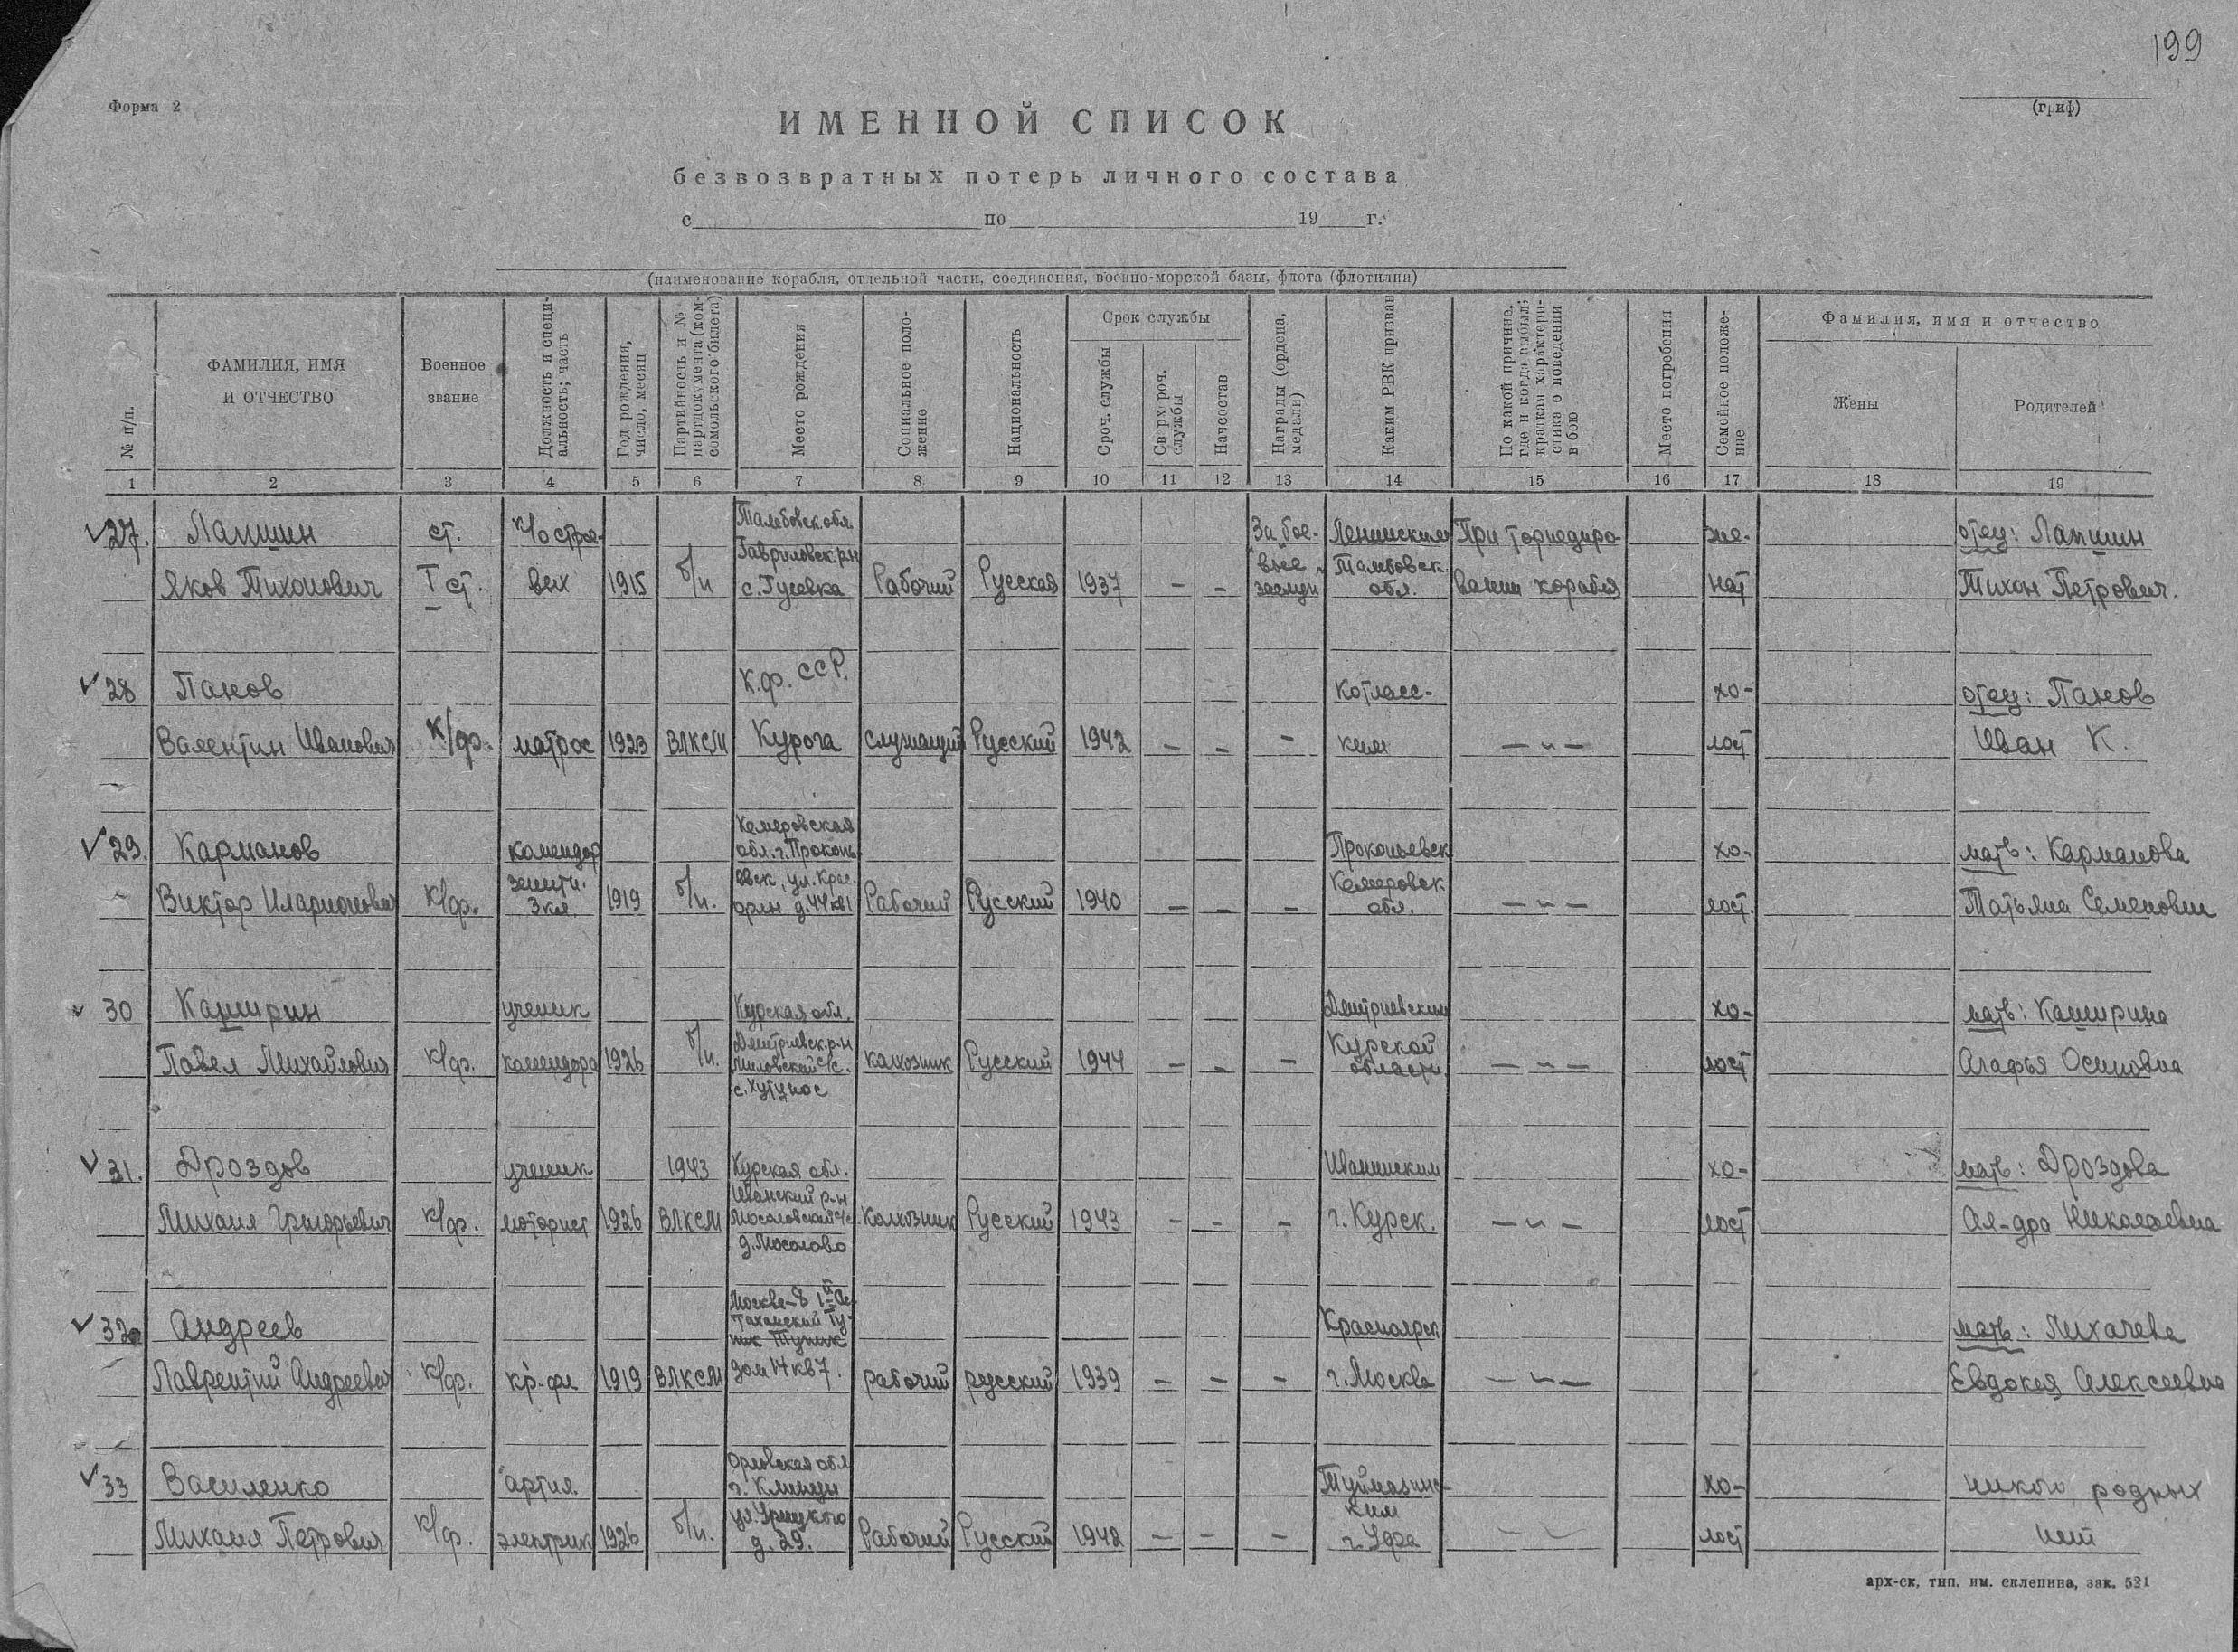 199
Форма 2
(гриф)
ИМЕННОЙ СПИСОК
безвозвратных потерь личного состава
с по 19 г.
(наименование корабля, отдельной части, соединения, военно-морской базы, флота (флотилии)
№ п/п.
ФАМИЛИЯ, ИМЯ И ОТЧЕСТВО
Военное звание
Должность и специальность; часть
Год рождения, число, месяц
Партийность и № партдокумента (комсомольского билета)
Место рождения
Социальное положение
Национальность
Срок службы
Сроч. службы
Сверхсроч. службы
Начсостав
Награды (ордена, медали)
Каким РВК призван
По какой причине, где и когда выбыл; краткая характеристика о поведении в бою
Место погребения
Семейное положение
Фамилия, имя и отчество
Жены
Родителей
1 2 3 4 5 6 7 8 9 10 11 12 13 14 15 16 17 18 19
27. Лапшин ст. Тамбовск обл. За бое- Ленинским При торпедиро- же- отец: Лапшин
Гавриловск р-н вые Тамбовск.
Яков Тихонович I ст. вых 1915 б/п с. Гусевка Рабочий Русская 1937 - - заслуги обл. вании корабля нат Тихон Петрович.
28 Панов К.ф. ССР. Котласс- хо- отец: Панов
Валентин Иванович к/ф. матрос 1923 ВЛКСМ Курога служащий Русский 1942 - - - ким — " — лост Иван К.
Кемеровская
29. Карманов комендор обл. г. Прокопь Прокопьевск хо- мать: Карманова
зенитн. евск, ул. Крас. Кемеровск
Виктор Иларионович к/ф. 3 кл. 1919 б/п. д. 44 Рабочий Русский 1940 - - - обл. — " — лост. Татьяна Семеновна
30 Каширин ученик Курская обл. Дмитриевским хо- мать: Каширина
Дмитриевск р-н Курской
Павел Михайлович к/ф. комендора 1926 б/п. с/с. колхозник Русский 1944 - - - области — " — лост Агафья Осиповна
31. Дроздов ученик 1943 Курская обл. Иванинским хо- мать: Дроздова
р-н
Михаил Григорьевич к/ф. моторист 1926 ВЛКСМ Мосоловский с/с колхозник Русский 1943 - - - г. Курск. — " — лост Ал-дра Николаевна
д. Мосолово
Москва-8 1й Ас-
32 Андреев таханский Ту- Красноярск мать: Лихачева
пик Тупик
Лаврентий Андреевич к/ф. кр-фл 1919 ВЛКСМ дом 14 кв 7. рабочий русский 1939 - - - г. Москва — " — Евдокея Алексеевна
Орловская обл
33 Василенко артил. г. Клинцы Туймазинс- хо- никого родных
ул. Урицкого ким
Михаил Петрович к/ф. электрик 1926 б/п. д. 29. Рабочий Русский 1942 - - - г. Уфа — " — лост нет
арх-ск, тип. им. склепина, зак. 521